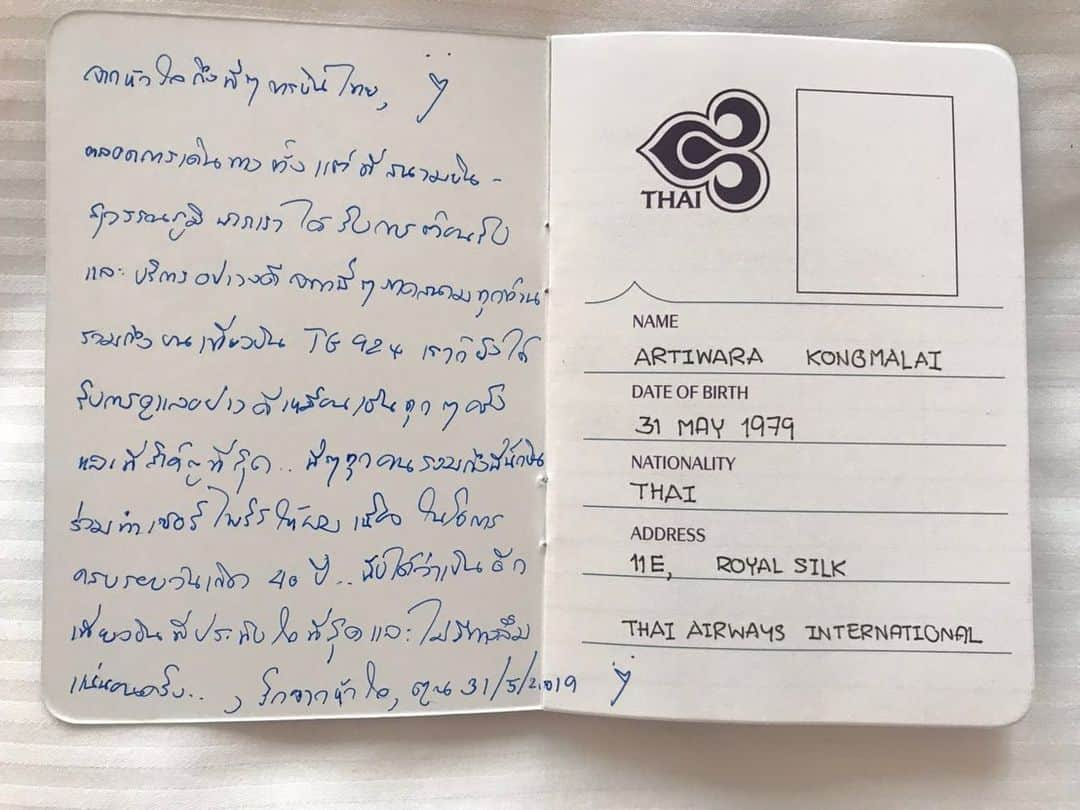 จากหัวใจถึงพี่ๆ การบินไทย,
ตลอดการเดินทาง ตั้งแต่ที่สนามบิน-
สุวรรณภูมิ พวกเราได้รับการต้อนรับ
และบริการอย่างดี จากพี่ๆ ภาคสนามทุกท่าน
รวมถึง บนเที่ยวบิน TG 924 เราก็ยังได้
รับการดูแลอย่างดีเหมือนเช่นทุกๆ ครั้ง
และที่สำคัญที่สุด.. พี่ๆ ทุกคน รวมถึงพี่นักบิน
ร่วมทำเซอร์ไพร์สให้ผม เนื่องในโอกาส
ครบรอบวันเกิด 40 ปี.. นับได้ว่าเป็นอีก
เที่ยวบินที่ประทับใจที่สุดและไม่มีทางลืม
แน่นอนครับ.. , รักจากหัวใจ, ตูน 31/5/2019
THAI
NAME
ARTIWARA KONGMALAI
DATE OF BIRTH
31 MAY 1979
NATIONALITY
THAI
ADDRESS
11E, ROYAL SILK
THAI AIRWAYS INTERNATIONAL